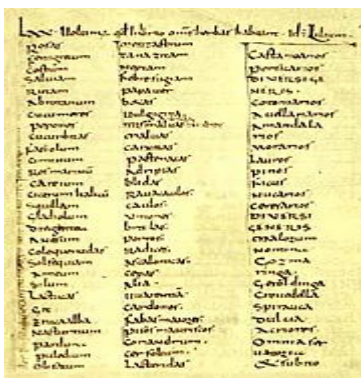 Lxx. Uolumus qd Inorto omnes herbas habeant. Idē Lilium.
Rosas
Fenigrecum
Costum
Saluiam
Rutam
Abrotanum
Cucumeres
Pepones
Cucurbitas
Fasiolum
Ciminum
Ros marinū
Careium
Cicerum italicū
Squillam
Gladiolum
Dragantea
Anesum
Coloquentidas
Solsequiam
Ameum
Silum
Lactucas
Git
Eruca alba
Nasturtium
Parduna
Puledium
Olisatum
Mentastrum
Tanazitam
Neptam
Febrefugiam
Papauer
Betas
Uulgigina
Maluas
Caruitas
Pastenacas
Adripias
Blidas
Rauacaulos
Caulos
Uniones
Britlas
Porros
Radices
Ascalonicas
Cepas
Alia
Uuarentiā
Cardones
Fabas maiores
Pisos mauriscos
Coriandrum
Cerfolium
Lacteridas
Castaniarios
Persicarios
DIUERSI GE
NERIS
Cotoniarios
Auellanarios
Amandala
rios
Morarios
Lauros
Pinos
Ficus
Nucarios
Ceresarios
DIUERSI
GENERIS
Malorum
Nomina
Gozma
ringa
Geroldinga
Creuedella
Spirauca
Dulcia
Acriores
Omnia ser
uatoria
& subito